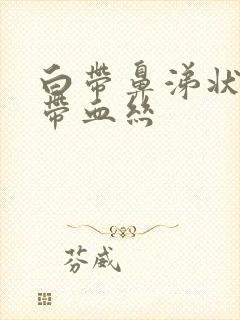 白帶鼻涕狀
帶血絲
芬威